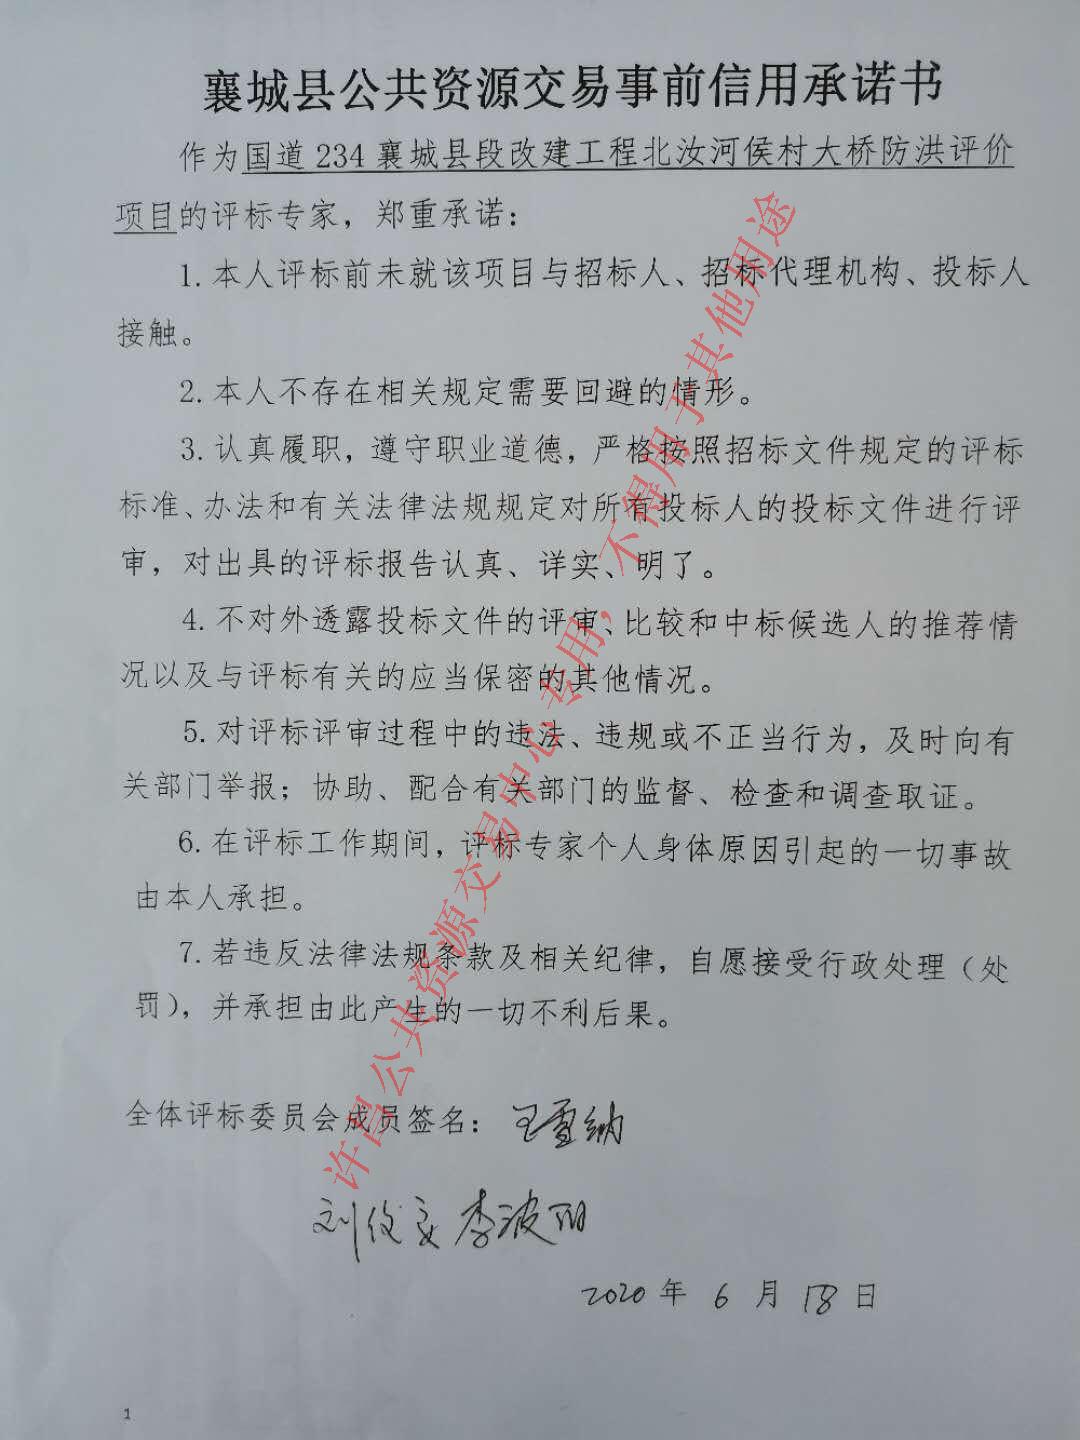 襄城县公共资源交易事前信用承诺书
作为国道 234 襄城县段改建工程北汝河侯村大桥防洪评价
项目的评标专家，郑重承诺：
1.本人评标前未就该项目与招标人、招标代理机构、投标人
接触。
2.本人不存在相关规定需要回避的情形。
3.认真履职，遵守职业道德，严格按照招标文件规定的评标
标准、办法和有关法律法规规定对所有投标人的投标文件进行评
审，对出具的评标报告认真、详实、明了。
4.不对外透露投标文件的评审、比较和中标候选人的推荐情
况以及与评标有关的应当保密的其他情况。
5.对评标评审过程中的违法、违规或不正当行为，及时向有
关部门举报；协助、配合有关部门的监督、检查和调查取证。
6.在评标工作期间，评标专家个人身体原因引起的一切事故
由本人承担。
7.若违反法律法规条款及相关纪律，自愿接受行政处理（处
罚），并承担由此产生的一切不利后果。
全体评标委员会成员签名：王雪纳
李波阳
2020 年 6 月 18 日
1
许昌公共资源交易中心专用，不得用于其他用途